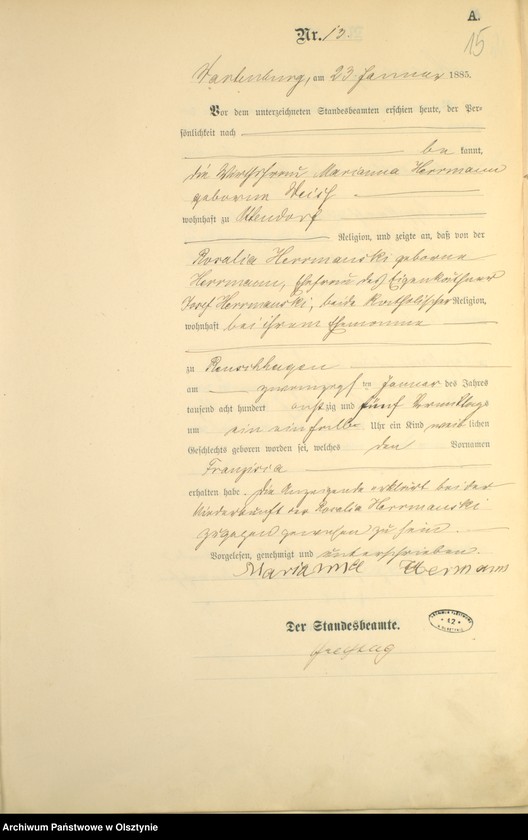 A.
Nr. 12.
15
Wartenburg, am 23 Januar 1885.
Vor dem unterzeichneten Standesbeamten erschien heute, der Per-
sönlichkeit nach
be kannt,
die Wirthsfrau Marianna Herrmann
geborene
wohnhaft zu Ottendorf
Religion, und zeigte an, daß von der
Rosalia Herrmanski geborene
Herrmann, Ehefrau des Eigenkäthner
Josef Herrmanski, beide katholischer Religion,
wohnhaft bei ihrem Ehemanne
zu Reuschhagen
am zwanzigsten Januar des Jahres
tausend acht hundert achtzig und fünf Vormittags
um ein einhalb Uhr ein Kind weiblichen
Geschlechts geboren worden sei, welches den Vornamen
Franzisca
erhalten habe. Die Anzeigende erklärt bei der
Niederkunft der Rosalia Herrmanski
zugegen gewesen zu sein.
Vorgelesen, genehmigt und unterschrieben.
Marianna Hermann
Der Standesbeamte.
* 12 *
Archiwum Państwowe w Olsztynie